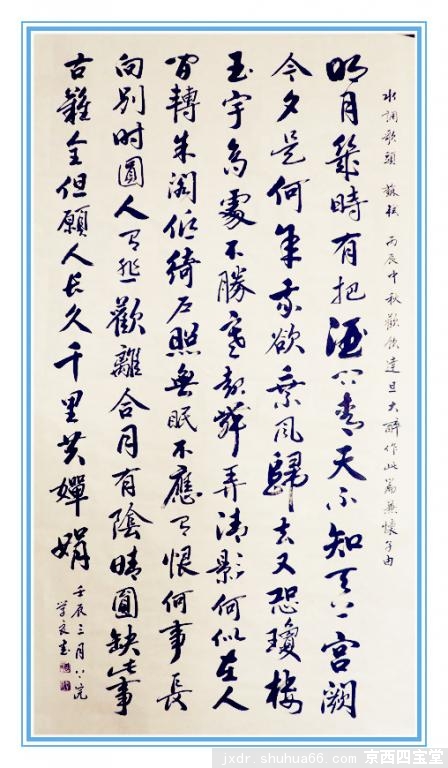 水調歌頭 蘇軾 丙辰中秋歡飲達旦大醉作此篇兼懷子由
明月幾時有把酒問青天不知天上宮闕
今夕是何年我欲乘風歸去又恐瓊樓
玉宇高處不勝寒起舞弄清影何似在人
間轉朱閣低綺戶照無眠不應有恨何事長
向別時圓人有悲歡離合月有陰晴圓缺此事
古難全但願人長久千里共嬋娟
壬辰三月
jxdr.shuhua66.com 京西四宝堂